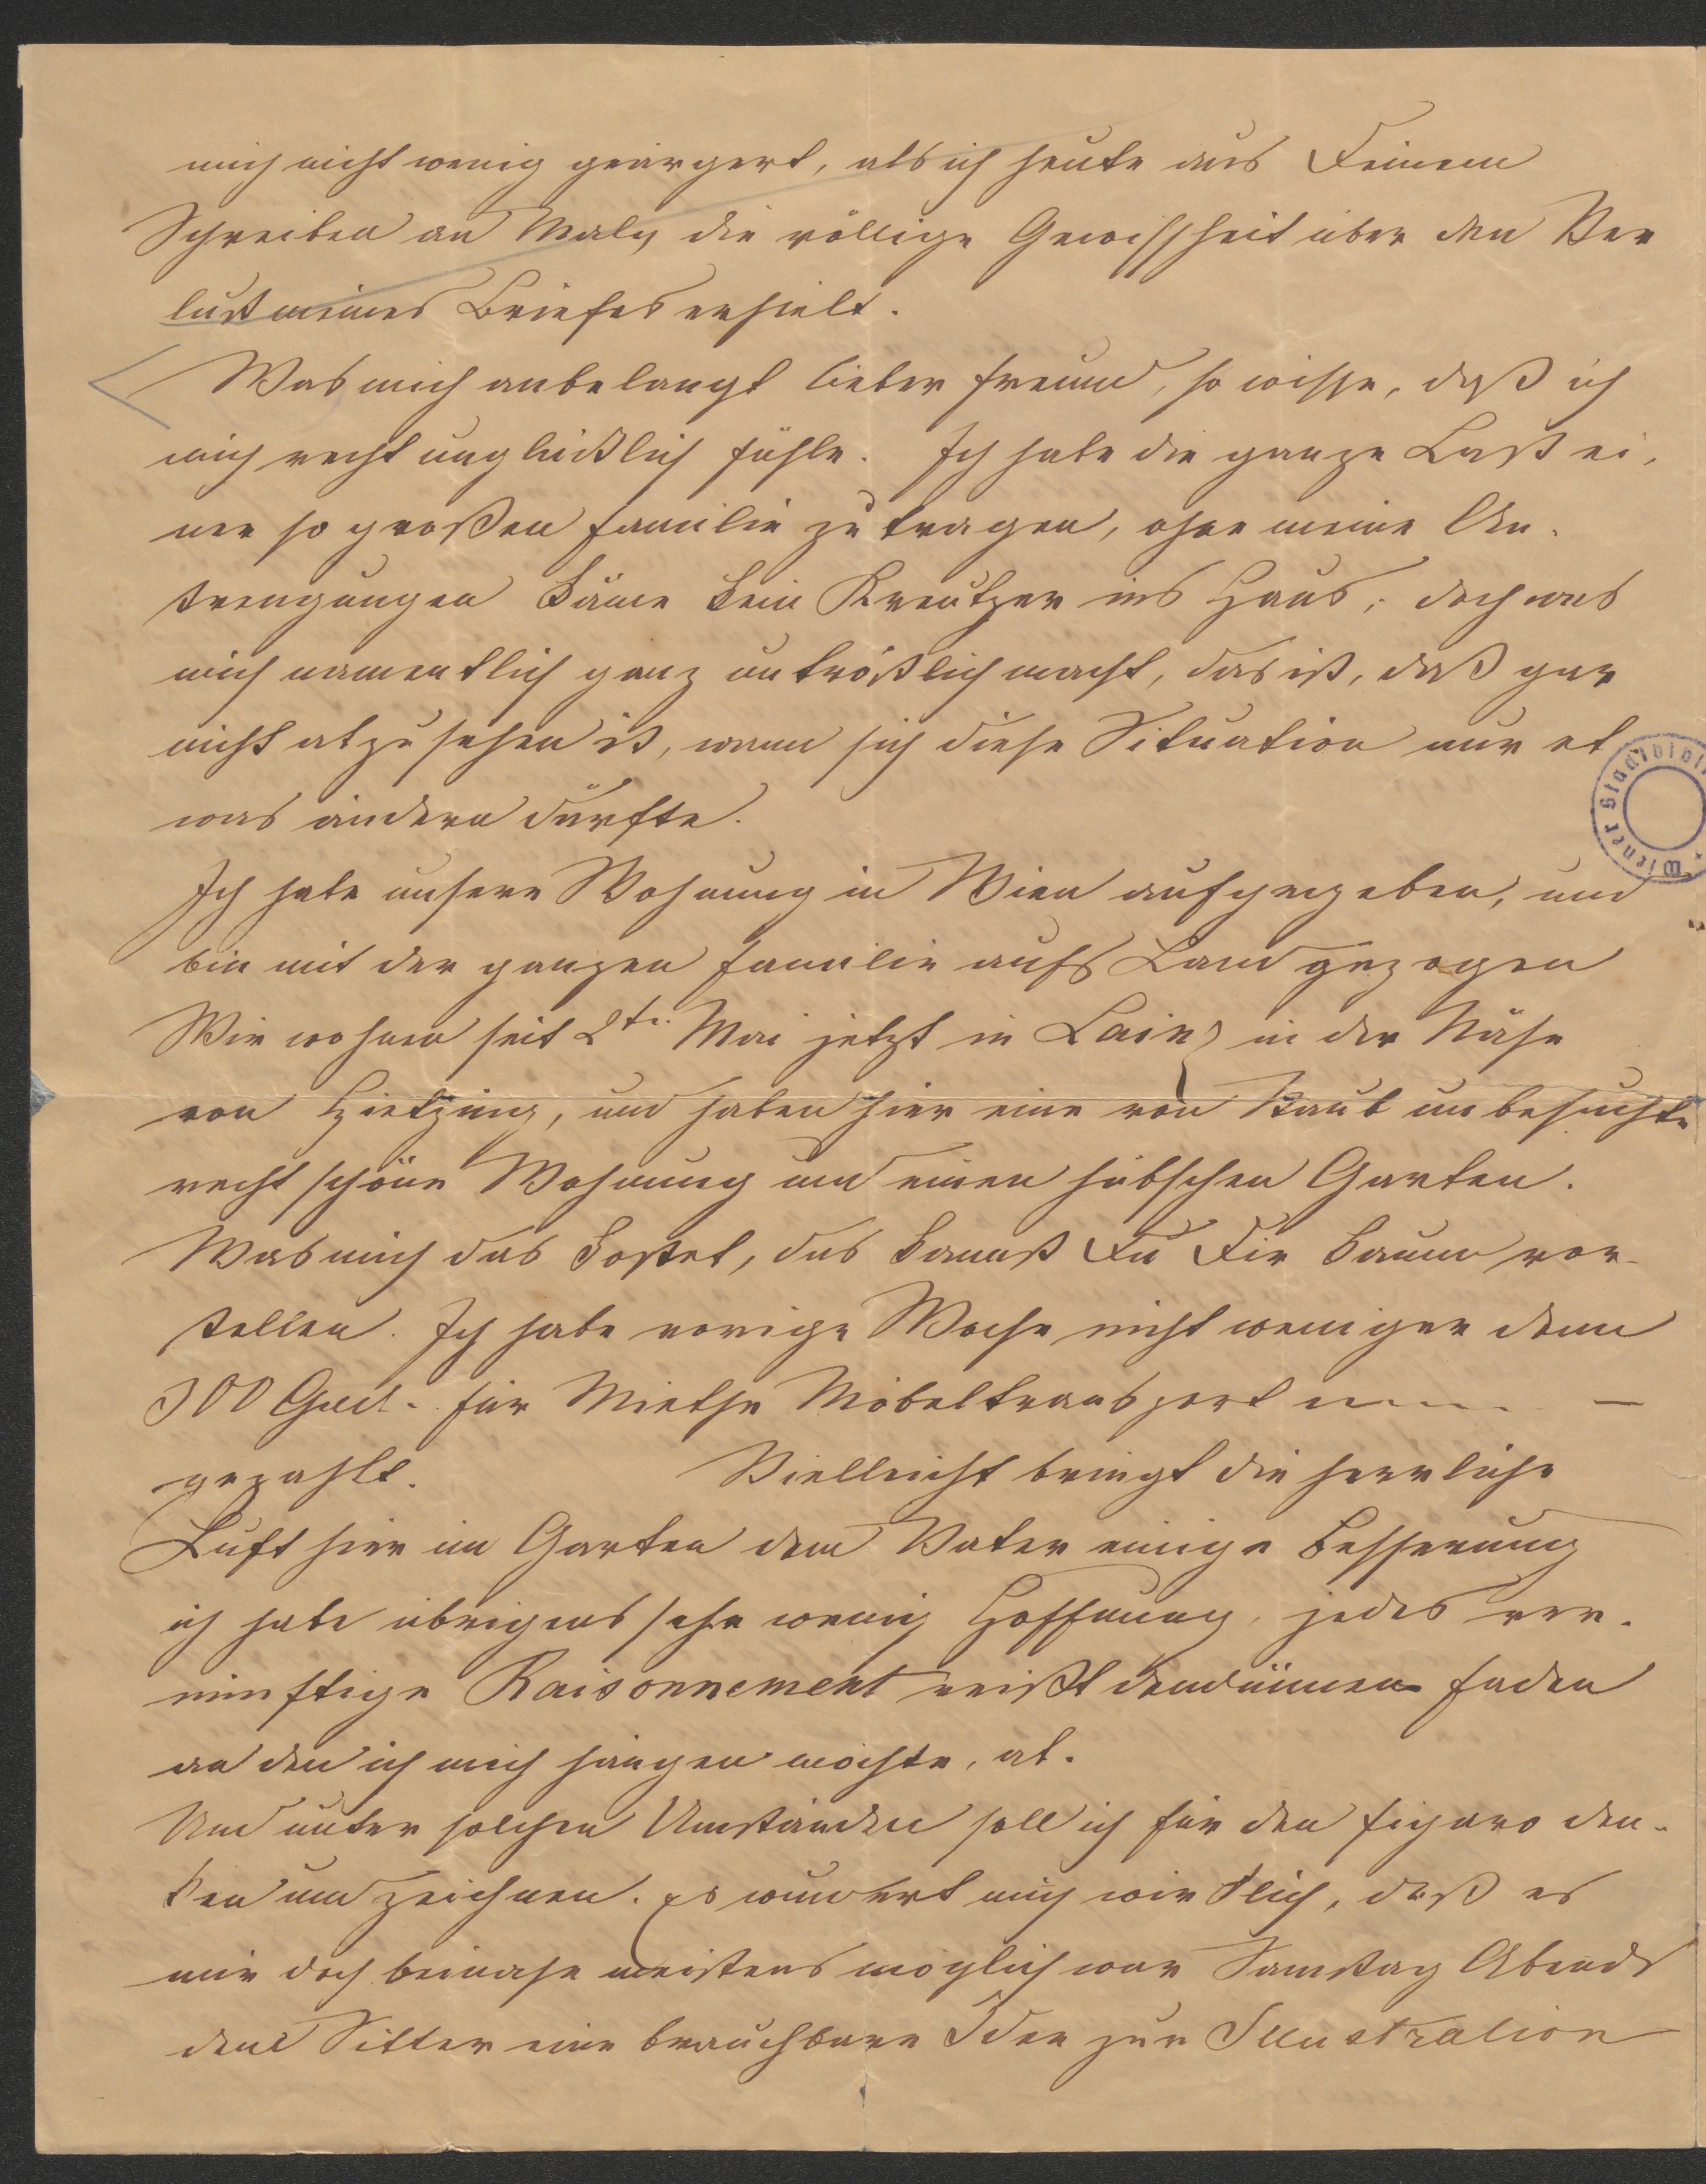 mich nicht wenig geärgert, als ich heute aus Deinem
Schreiben an Maly die völlige Gewissheit über den Ver
lust meines Briefes erhielt.
Was mich anbelangt lieber Freund, so wisse, daß ich
mich recht unglücklich fühle. Ich habe die ganze Last ei-
ner so großen Familie zu tragen, ohne meine An-
strengungen käme kein Kreutzer ins Haus; doch was
mich namentlich ganz untröstlich macht, das ist, daß gar
nicht abzusehen ist, wann sich diese Situation nur et
was ändern dürfte.
Ich habe unsere Wohnung in Wien aufgegeben, und
bin mit der ganzen Familie aufs Land gezogen
Wir wohnen seit 2t. Mai jetzt in Lainz in der Nähe
von Hietzing, und haben hier eine von Staub unbesuchte
recht schöne Wohnung und einen hübschen Garten.
Was mich das kostet, das kannst Du Dir kaum vor-
stellen. Ich habe vorige Woche nicht weniger denn
300 Guld. für Miethe Möbeltransport
gezahlt. Vielleicht bringt die herrliche
Luft hier im Garten dem Vater einige Besserung
ich habe übrigens sehr wenig Hoffnung, jedes ver-
nünftige Raisonnement reißt den dünnen Faden
an den ich mich hängen möchte, ab.
Und unter solchen Umständen soll ich für den Figaro den-
ken und zeichnen. Es wundert mich wirklich, daß es
mir doch beinahe meistens möglich war Samstag Abends
dem Sitter eine brauchbare Idee zur Illustration
Wiener Stadtbibl